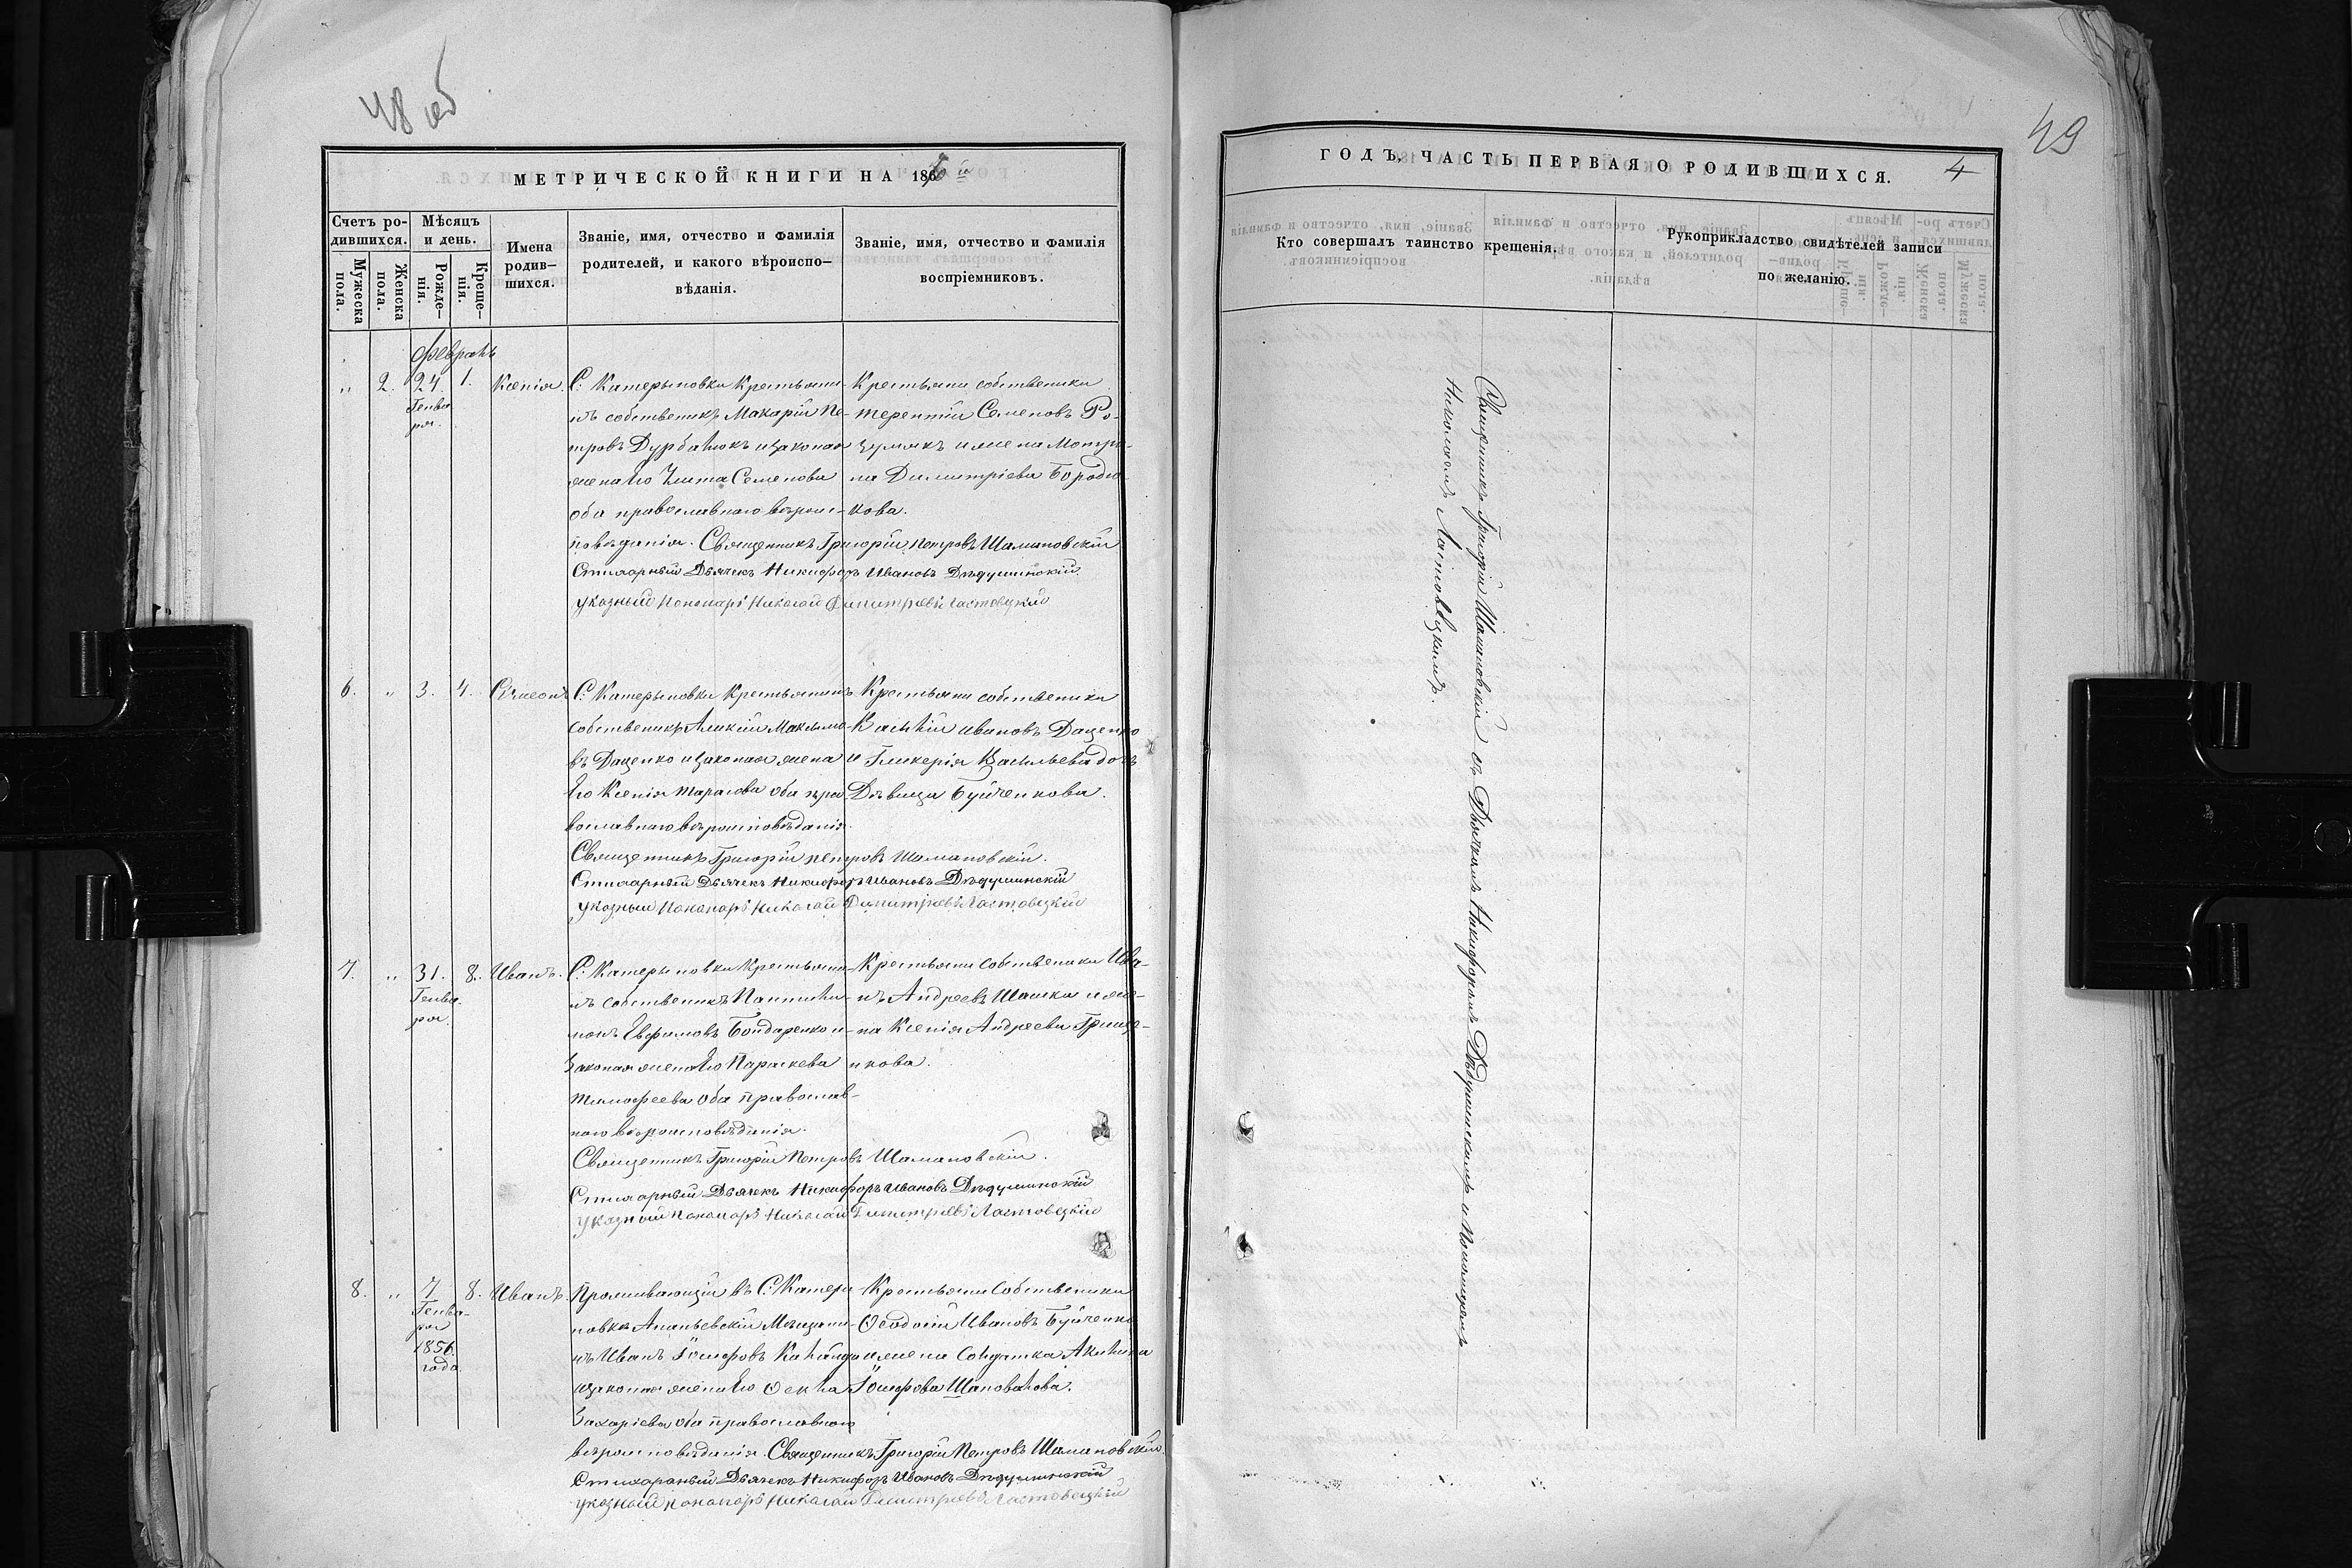 48 об
МЕТРИЧЕСКОЙ КНИГИ НА 186
Счетъ ро-
дившихся.
Мѣсяцъ
и день.
Мужеска
пола.
Женска
пола.
Рожде-
нія.
Креще-
нія.
Имена
родив-
шихся.
Званіе, имя, отчество и фамилія
родителей, и какого вѣроиспо-
вѣданія.
Званіе, имя, отчество и фамилія
воспріемниковъ.
Февраль
„ 2. 24. 1. Ксенія.
Генва
ря.
С: Катерыновки Крестьяни-
нъ собственикъ Макарій Пе-
тровъ Дурбалюкъ изаконая
жена Его Улита Семенова
оба православнаго вѣроис-
повѣданія. Священникъ Григорій Петровъ Шамановскій
Стихарный Дьячекъ Никифоръ Ивановъ Дѣдушинскій
указный Пономарь Николай Димитріевъ Ластовецкій
Крестьяни собственики
Терентій Семеновъ Ро-
зумякъ и жена Мотро-
на Димитріева Бородю-
кова.
6. „ 3. 4. Сѵмеонъ
С: Катерыновки Крестьянинъ
собственикъ Алексій Максимо-
въ Даценко изаконая жена
Его Ксенія Тарасова оба пра-
вославнаго вѣроисповѣданія.
Священникъ Григорій Петровъ Шамановскій.
Стихарный Дьячекъ Никифоръ Ивановъ Дѣдушинскій
указный Пономарь Николай Димитріевъ Ластовецкій
Крестьяни собственики
Василій Ивановъ Даценко
и Гликерія Васильева дочь
Дѣвица Буйченкова.
7. „ 31. 8. Иванъ.
Генва-
ря.
С: Катерыновки Крестьяни-
нъ собственикъ Пантили-
монъ Евфимовъ Бондаренко и
законая жена Его Параскева
Тимофеева оба православ-
наго вѣроисповѣданія.
Священникъ Григорій Петровъ Шамановскій.
Стихарный Дьячекъ Никифоръ Ивановъ Дѣдушинскій
указный Пономарь Николай Димитріевъ Ластовецкій
Крестьяни Собственики Ива-
нъ Андреевъ и же-
на Ксенія Андреева Грице-
нкова.
8. „ 7 8. Иванъ.
Генва-
ря
1856.
года.
Проживающій въ С: Катери-
новкѣ Ананьевскій Мещани-
нъ Иванъ Іосифовъ
изаконая жена Его Оекла
Захаріева оба православнаго
вѣроисповѣданія. Священникъ Григорій Петровъ Шамановскій.
Стихарный Дьячекъ Никифоръ Ивановъ Дѣдушинскій
указный Пономарь Николай Димитріевъ Ластовецкій
Крестьяни Собственики
Ѳеодосій Ивановъ Буйченко
и жена Солдатка Акилина
Іосифова Шаповалова.
49
ГОДЪ, ЧАСТЬ ПЕРВАЯ О РОДИВШИХСЯ.
4
Кто совершалъ таинство крещенія.
Рукоприкладство свидѣтелей записи
по желанію.
Священникъ Григорій Шамановскій съ Дьячкомъ Никифоромъ Дѣдушинскимъ и Пономаремъ
Николаемъ Ластовецкимъ.